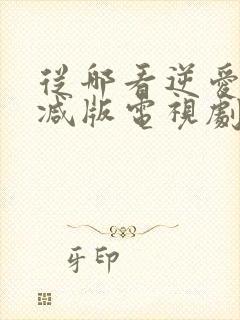 從哪看逆愛
减版電視劇
牙印